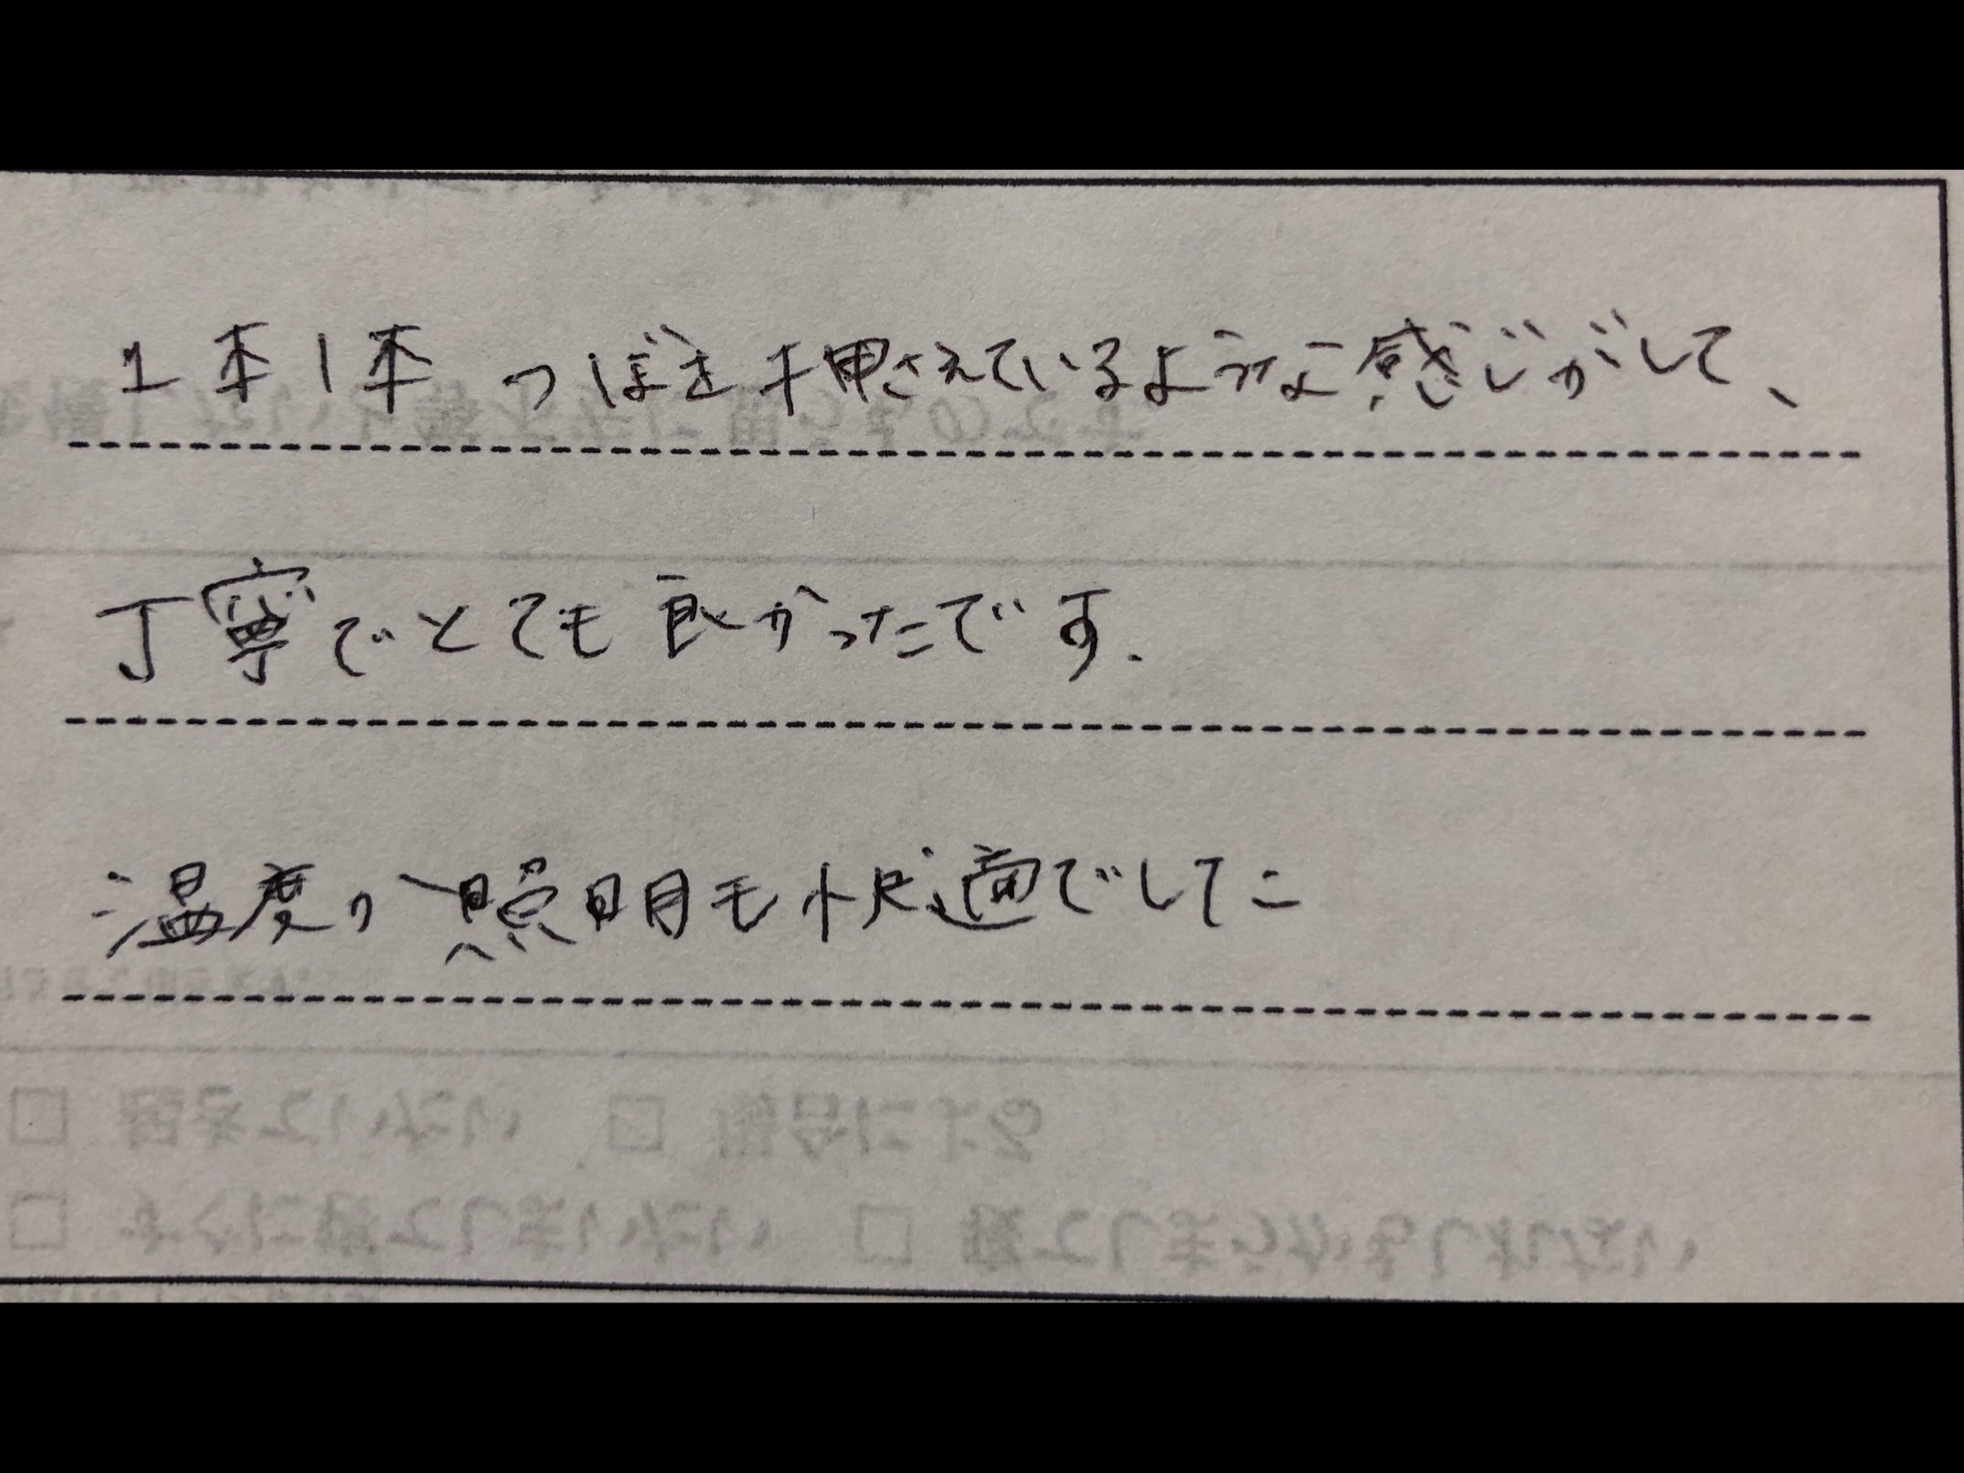 1本1本 つぼを押さえているような感じがして、
丁寧でとても良かったです.
温度や照明も快適でした